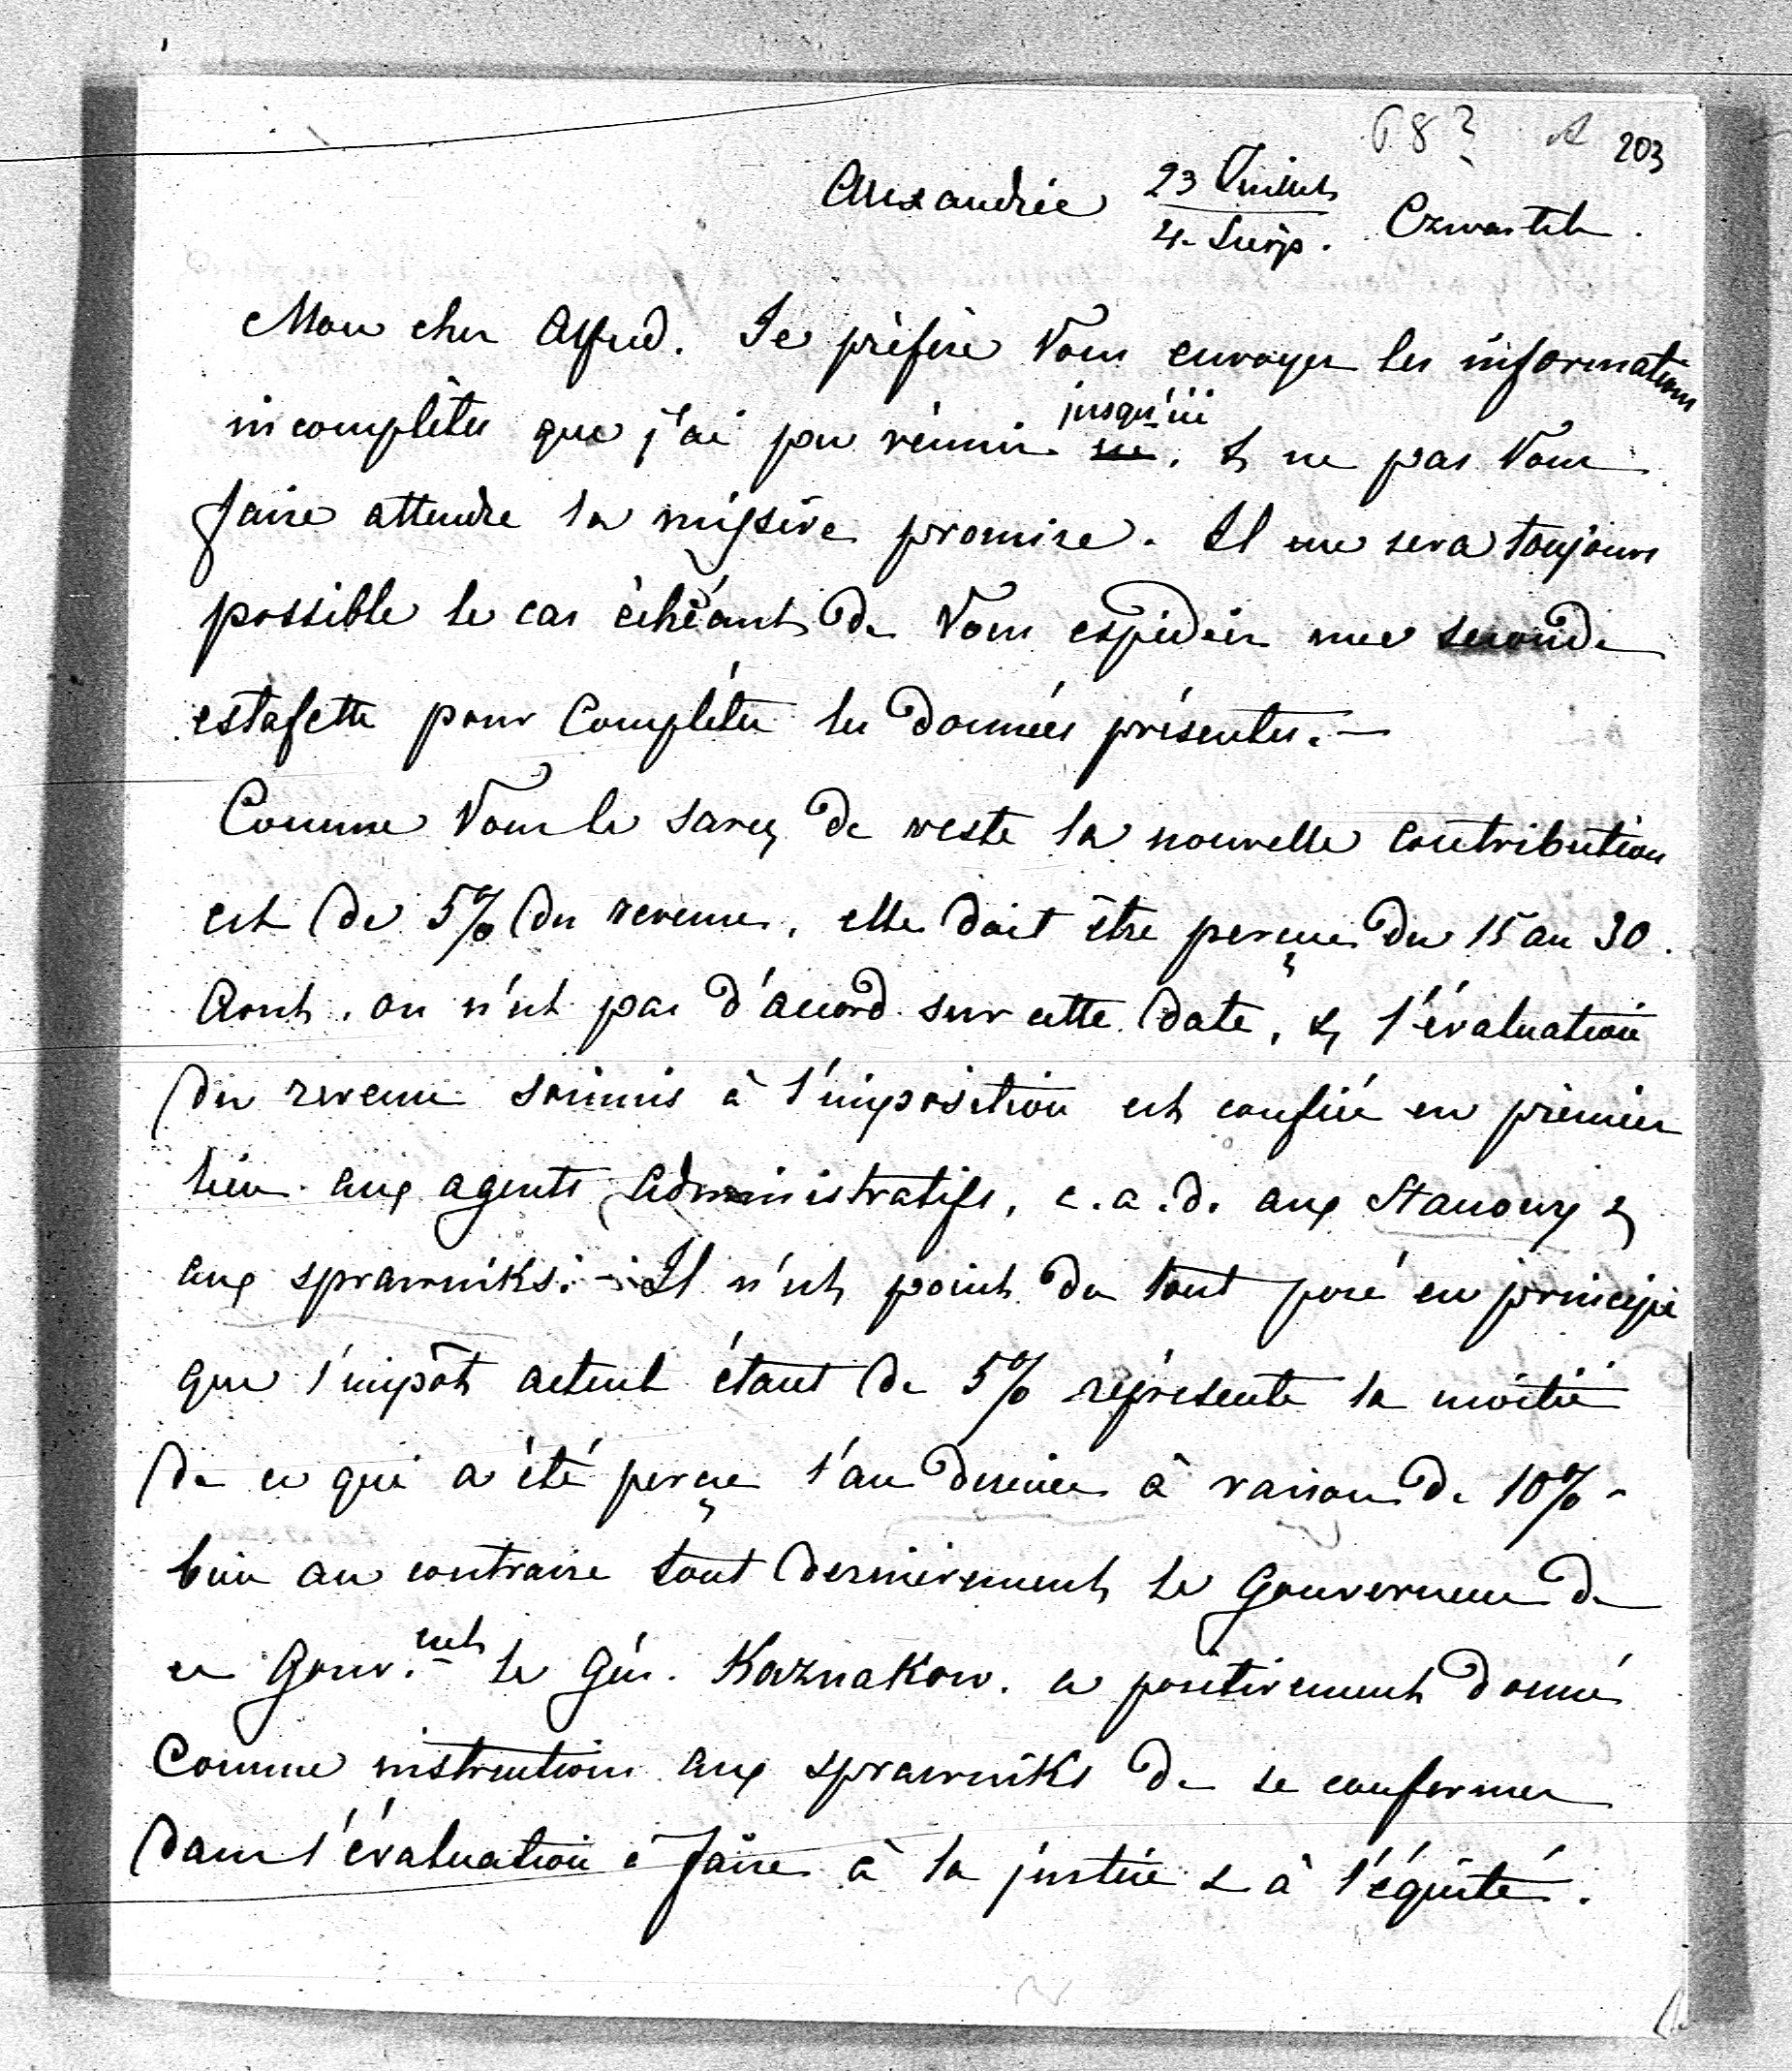 68? A 203
Alexandrie 23 Juillet / 4. Sierp. Czwartek.
Mon cher Alfred. Je préfère Vous envoyer les informations
incomplètes que j'ai pu réunir jusqu'ici, & ne pas Vous
faire attendre la missive promise. Il me sera toujours
possible le cas échéant de Vous expédier une seconde
estafette pour compléter les données présentes. —
Comme Vous le savez de reste la nouvelle contribution
est de 5% du revenu, elle doit être perçue du 15 au 30.
Aout. on n'est pas d'accord sur cette date, & l'évaluation
du revenu soumis à l'imposition est confiée en premier
lieu aux agents administratifs, c.a.d. aux Stanowy &
aux sprawniks. — Il n'est point du tout posé en principe
que l'impôt actuel étant de 5% représente la moitié
de ce qui a été perçu l'an dernier à raison de 10% -
bien au contraire tout dernièrement le Gouverneur de
ce Gouv.ent le Gén. Kaznakow. a positivement donné
Comme instruction aux sprawniks de se conformer
dans l'évaluation à faire à la justice & à l'équité.